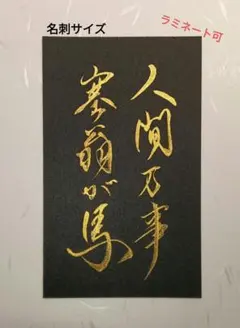 名刺サイズ
ラミネート可
人間万事
塞翁が馬